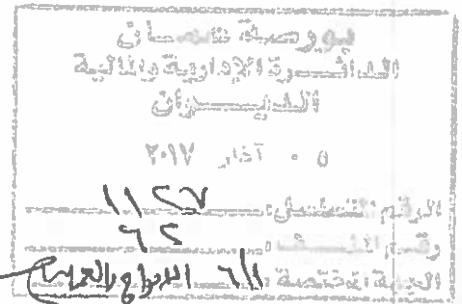 بورصة عمان
الدائرة الإدارية والمالية
الديوان
٠٥ آذار ٢٠١٧
الرقم المتسلسل: ١١٢٧
رقم الملف: ٦٢
الجهة المختصة: